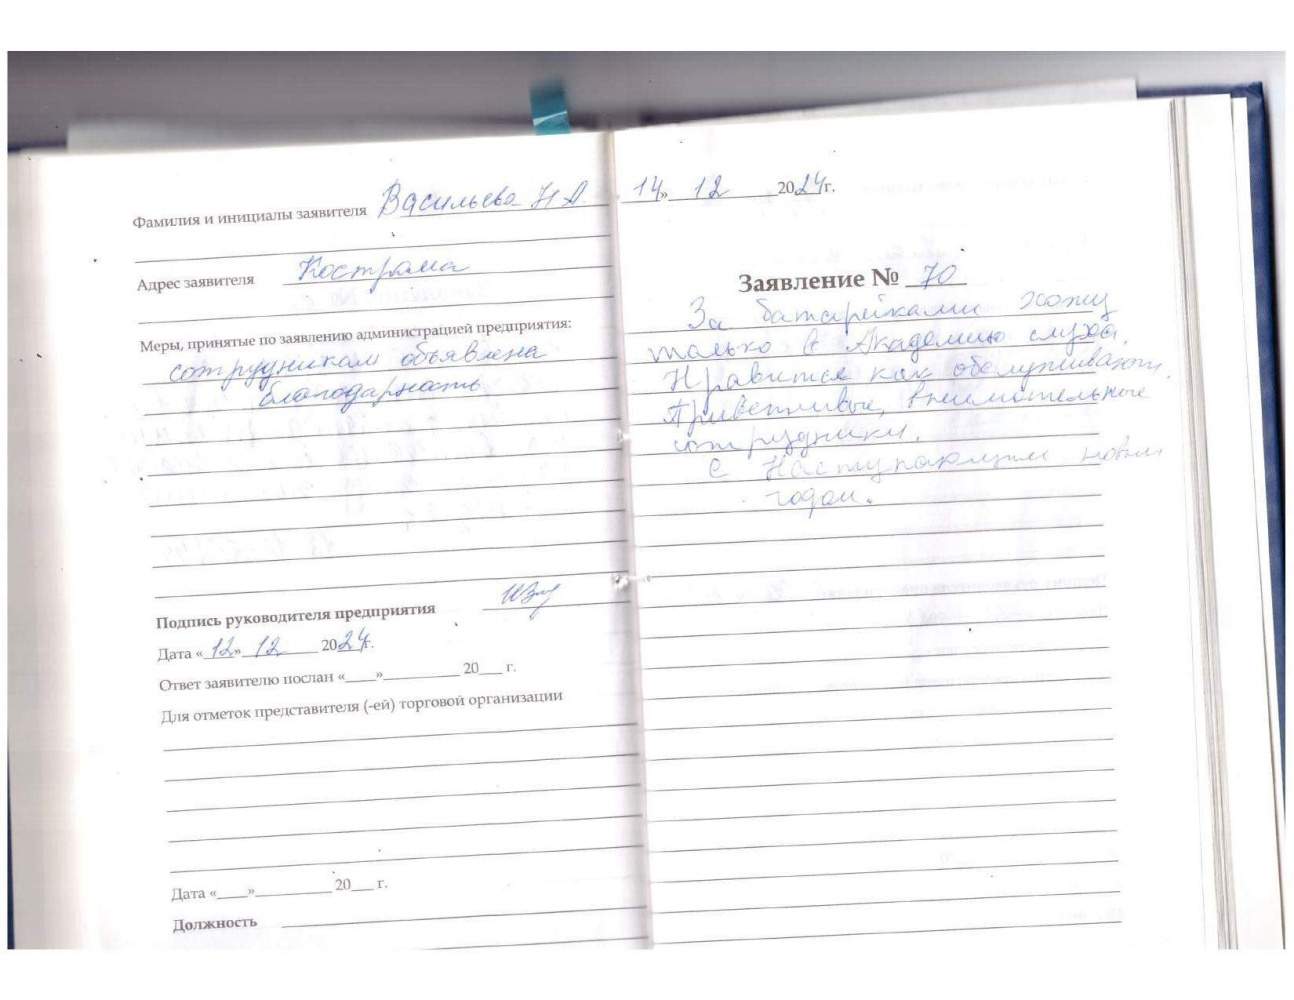 Фамилия и инициалы заявителя Васильева Н А
Адрес заявителя Кострома
Меры, принятые по заявлению администрацией предприятия:
сотрудникам объявлена
благодарность
Подпись руководителя предприятия
Дата «12» 12 2024г.
Ответ заявителю послан «____»__________ 20___ г.
Для отметок представителя (-ей) торговой организации
Дата «____»__________ 20___ г.
Должность
14» 12 2024г.
Заявление № 70
За батарейками хожу
только в Академию слуха.
Нравится как обслуживают.
Приветливые, внимательные
сотрудники.
С Наступающим новым
годом.